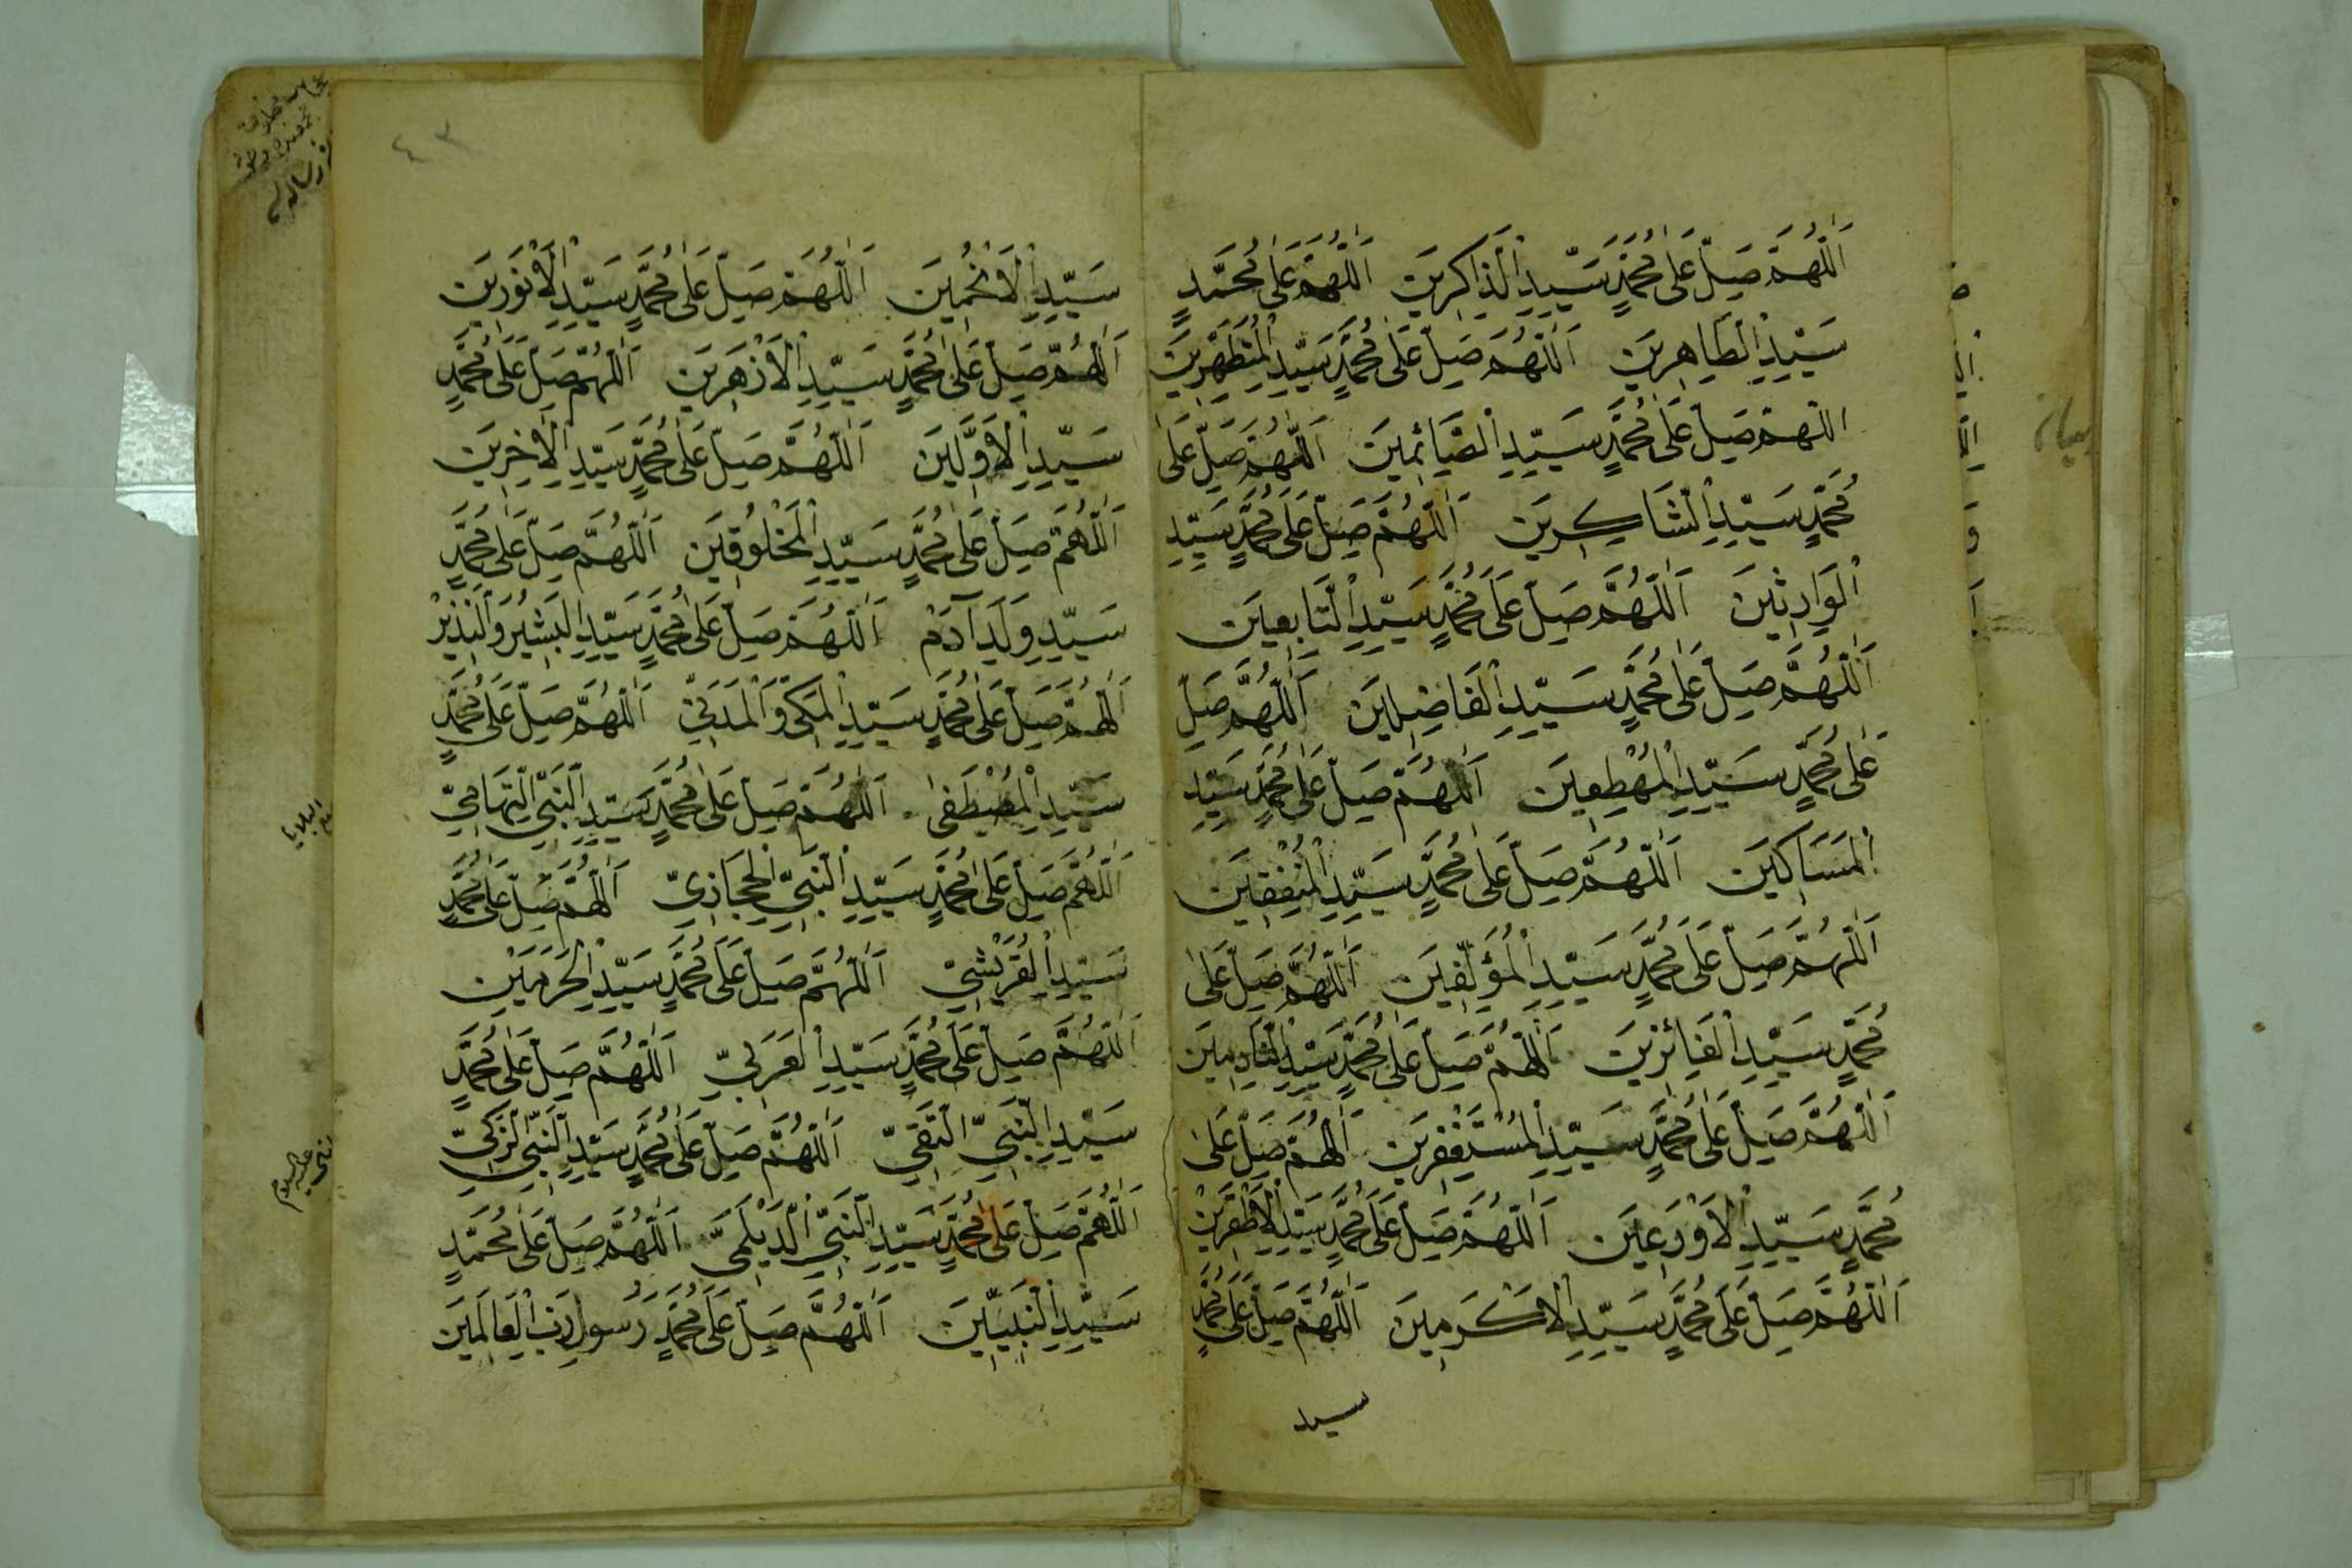 اَللّٰهُمَّ صَلِّ عَلٰى مُحَمَّدٍ سَيِّدِ الذَّاكِرِينَ اَللّٰهُمَّ عَلٰى مُحَمَّدٍ
سَيِّدِ الطَّاهِرِينَ اَللّٰهُمَّ صَلِّ عَلٰى مُحَمَّدٍ سَيِّدِ الْمُتَطَهِّرِينَ
اللّٰهُمَّ صَلِّ عَلٰى مُحَمَّدٍ سَيِّدِ الصَّائِمِينَ اَللّٰهُمَّ صَلِّ عَلٰى
مُحَمَّدٍ سَيِّدِ الشَّاكِرِينَ اَللّٰهُمَّ صَلِّ عَلٰى مُحَمَّدٍ سَيِّدِ
الْوَارِثِينَ اَللّٰهُمَّ صَلِّ عَلٰى مُحَمَّدٍ سَيِّدِ التَّابِعِينَ
اَللّٰهُمَّ صَلِّ عَلٰى مُحَمَّدٍ سَيِّدِ الْفَاضِلِينَ اَللّٰهُمَّ صَلِّ
عَلٰى مُحَمَّدٍ سَيِّدِ الْمُهْطِعِينَ اَللّٰهُمَّ صَلِّ عَلٰى مُحَمَّدٍ سَيِّدِ
الْمَسَاكِينَ اَللّٰهُمَّ صَلِّ عَلٰى مُحَمَّدٍ سَيِّدِ الْمُنْفِقِينَ
اَللّٰهُمَّ صَلِّ عَلٰى مُحَمَّدٍ سَيِّدِ الْمُؤَلِّفِينَ اَللّٰهُمَّ صَلِّ عَلٰى
مُحَمَّدٍ سَيِّدِ الْفَائِزِينَ اَللّٰهُمَّ صَلِّ عَلٰى مُحَمَّدٍ سَيِّدِ النَّادِمِينَ
اَللّٰهُمَّ صَلِّ عَلٰى مُحَمَّدٍ سَيِّدِ الْمُسْتَغْفِرِينَ اَللّٰهُمَّ صَلِّ عَلٰى
مُحَمَّدٍ سَيِّدِ الْاَوْرَعِينَ اَللّٰهُمَّ صَلِّ عَلٰى مُحَمَّدٍ سَيِّدِ
اَللّٰهُمَّ صَلِّ عَلٰى مُحَمَّدٍ سَيِّدِ الْاَكْرَمِينَ اَللّٰهُمَّ صَلِّ عَلٰى مُحَمَّدٍ
سيد
٤٣
سَيِّدِ الْاَنْجُمِينَ اَللّٰهُمَّ صَلِّ عَلٰى مُحَمَّدٍ سَيِّدِ الْاَنْوَرِينَ
اَللّٰهُمَّ صَلِّ عَلٰى مُحَمَّدٍ سَيِّدِ الْاَزْهَرِينَ اَللّٰهُمَّ صَلِّ عَلٰى مُحَمَّدٍ
سَيِّدِ الْاَوَّلِينَ اَللّٰهُمَّ صَلِّ عَلٰى مُحَمَّدٍ سَيِّدِ الْاٰخِرِينَ
اَللّٰهُمَّ صَلِّ عَلٰى مُحَمَّدٍ سَيِّدِ الْمَخْلُوقِينَ اَللّٰهُمَّ صَلِّ عَلٰى مُحَمَّدٍ
سَيِّدِ وَلَدِ آدَمَ اَللّٰهُمَّ صَلِّ عَلٰى مُحَمَّدٍ سَيِّدِ الْبَشِيْرِ وَالنَّذِيْرِ
اَللّٰهُمَّ صَلِّ عَلٰى مُحَمَّدٍ سَيِّدِ الْمَكِّيِّ وَالْمَدَنِيِّ اَللّٰهُمَّ صَلِّ عَلٰى مُحَمَّدٍ
سَيِّدِ الْمُصْطَفٰى اَللّٰهُمَّ صَلِّ عَلٰى مُحَمَّدٍ سَيِّدِ النَّبِيِّ التِّهَامِيِّ
اَللّٰهُمَّ صَلِّ عَلٰى مُحَمَّدٍ سَيِّدِ النَّبِيِّ الْحِجَازِيِّ اَللّٰهُمَّ صَلِّ عَلٰى مُحَمَّدٍ
سَيِّدِ الْقُرَيْشِيِّ اَللّٰهُمَّ صَلِّ عَلٰى مُحَمَّدٍ سَيِّدِ الْحَرَمَيْنِ
اَللّٰهُمَّ صَلِّ عَلٰى مُحَمَّدٍ سَيِّدِ الْعَرَبِيِّ اَللّٰهُمَّ صَلِّ عَلٰى مُحَمَّدٍ
سَيِّدِ النَّبِيِّ التَّقِيِّ اَللّٰهُمَّ صَلِّ عَلٰى مُحَمَّدٍ سَيِّدِ النَّبِيِّ الزَّكِيِّ
اَللّٰهُمَّ صَلِّ عَلٰى مُحَمَّدٍ سَيِّدِ النَّبِيِّ الدَّيْلَمِيِّ اَللّٰهُمَّ صَلِّ عَلٰى مُحَمَّدٍ
سَيِّدِ النَّبِيِّينَ اَللّٰهُمَّ صَلِّ عَلٰى مُحَمَّدٍ رَسُولِ رَبِّ الْعَالَمِينَ